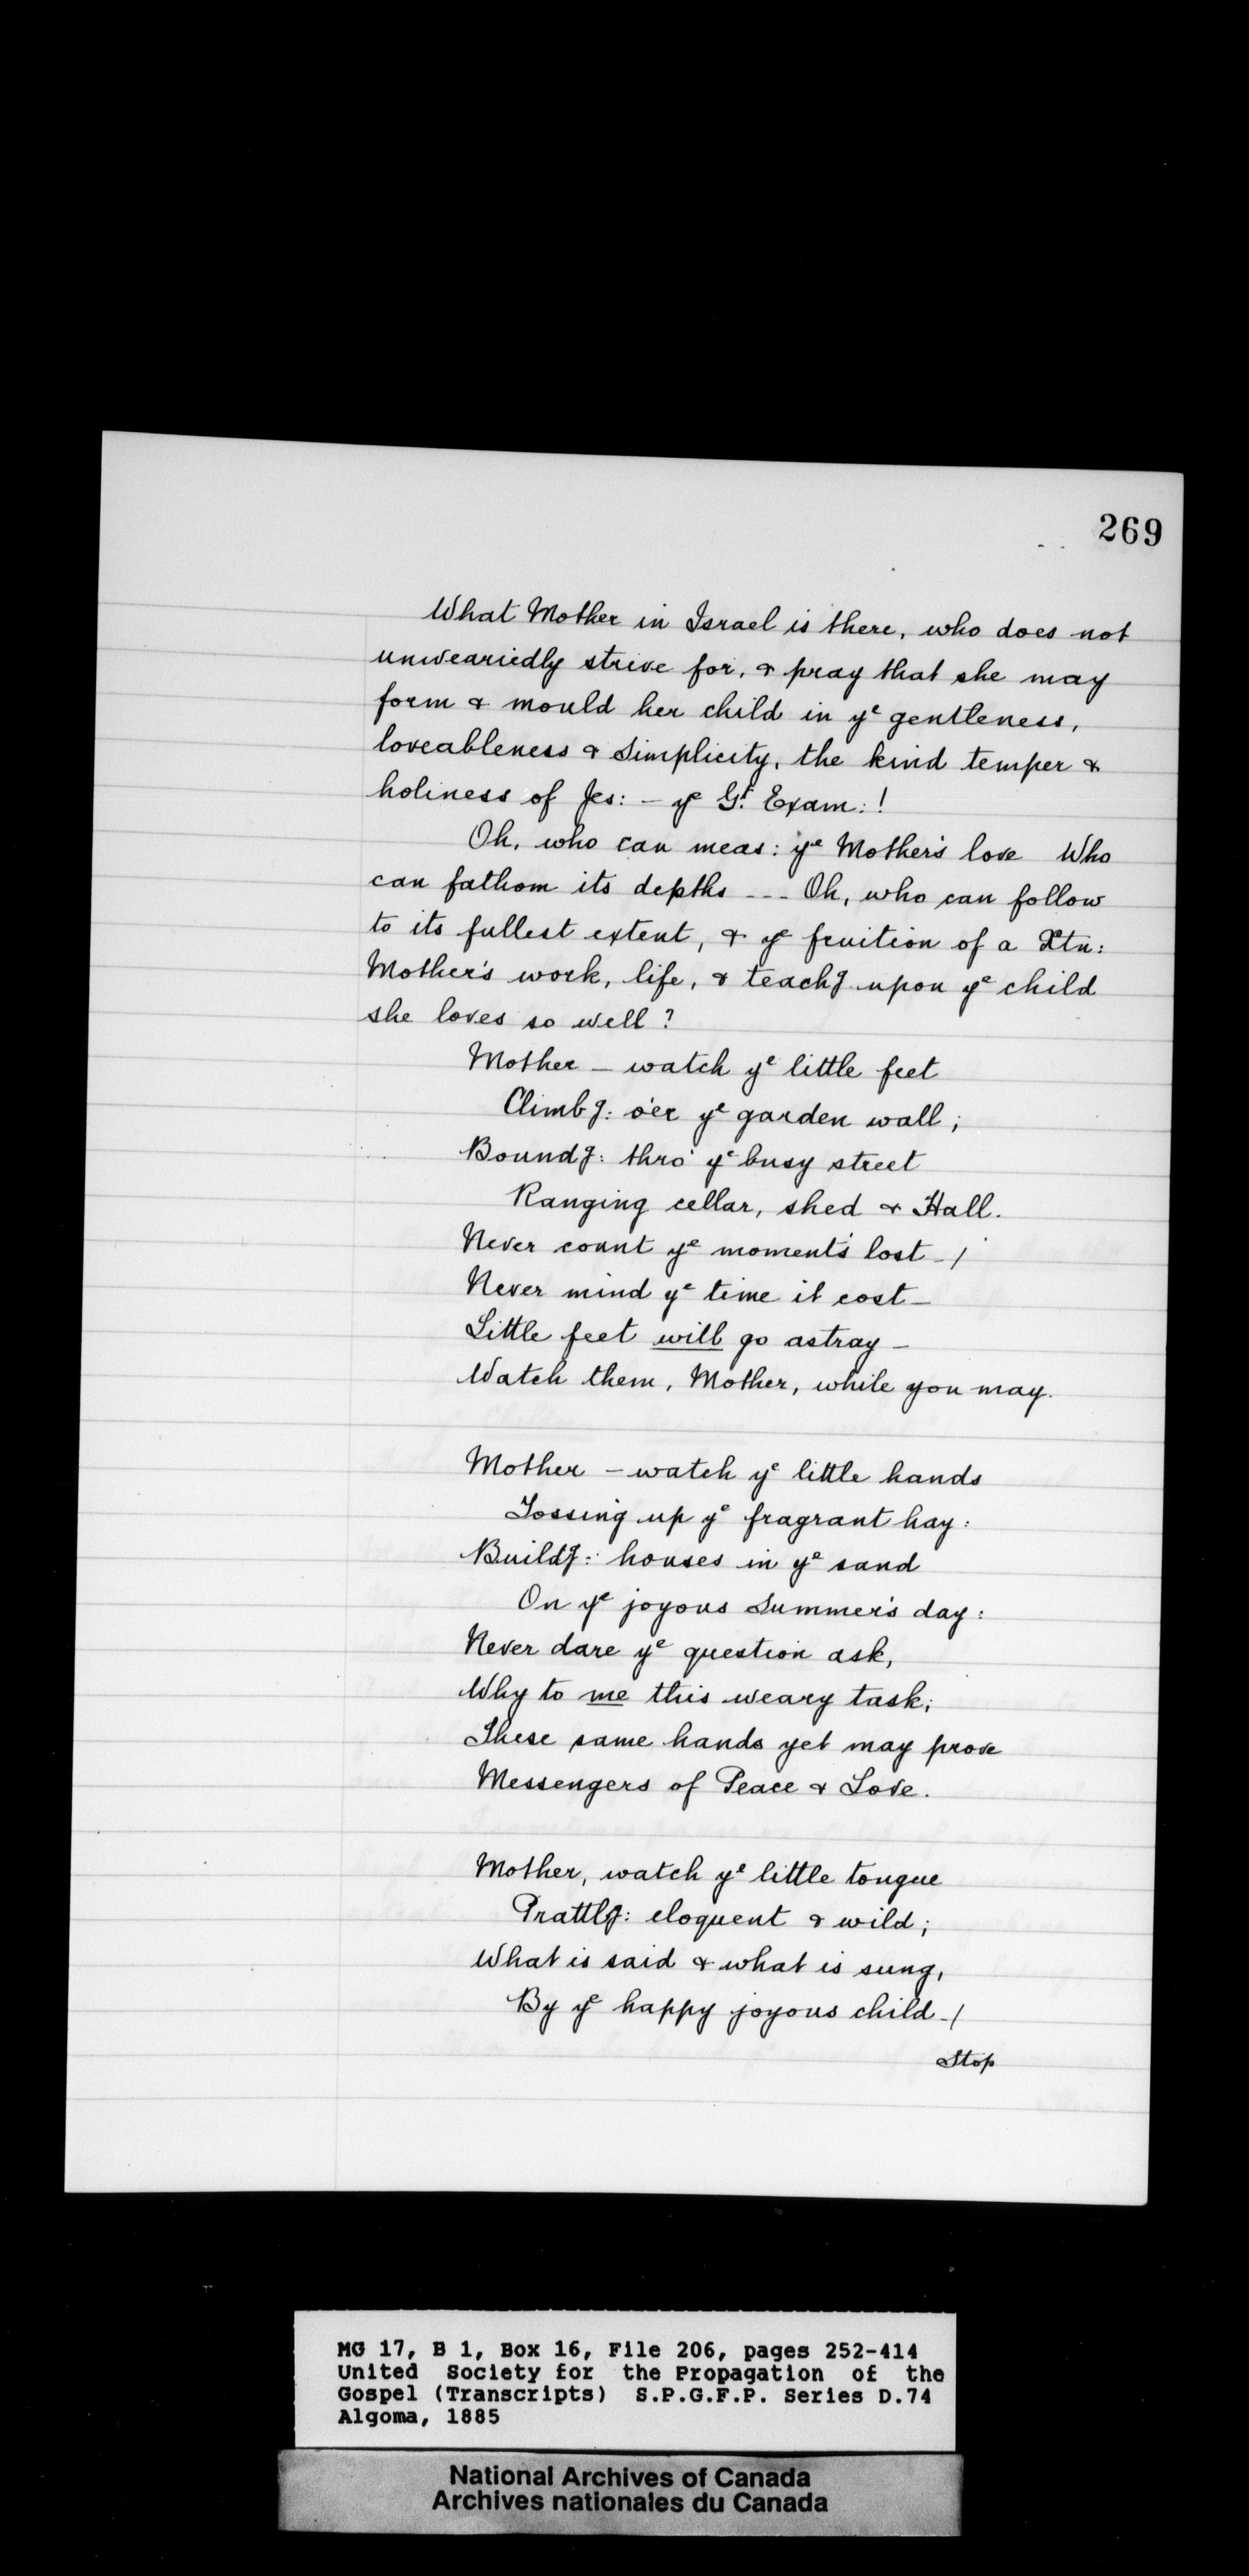 269
What Mother in Israel is there, who does not
unweariedly strive for, & pray that she may
form & mould her child in yᵉ gentleness,
loveableness & Simplicity, the kind temper &
holiness of Jes: – yᵉ Gᵗ. Exam: !
Oh, who can meas: yᵉ Mother's love Who
can fathom its depths --- Oh, who can follow
to its fullest extent, & yᵉ fruition of a Xtn:
Mother's work, life, & teachg upon yᵉ child
she loves so well ?
Mother – watch yᵉ little feet
Climbg: o'er yᵉ garden wall ;
Boundg: thro' yᵉ busy street
Ranging cellar, shed & Hall.
Never count yᵉ moments lost – /
Never mind yᵉ time it cost –
Little feet will go astray –
Watch them, Mother, while you may.
Mother – watch yᵉ little hands
Tossing up yᵉ fragrant hay :
Buildg: houses in yᵉ sand
On yᵉ joyous Summer's day :
Never dare yᵉ question ask,
Why to me this weary task;
These same hands yet may prove
Messengers of Peace & Love.
Mother, watch yᵉ little tongue
Prattlg: eloquent & wild ;
What is said & what is sung,
By yᵉ happy joyous child – /
Stop
MG 17, B 1, Box 16, File 206, pages 252-414
United Society for the Propagation of the
Gospel (Transcripts) S.P.G.F.P. Series D.74
Algoma, 1885
National Archives of Canada
Archives nationales du Canada